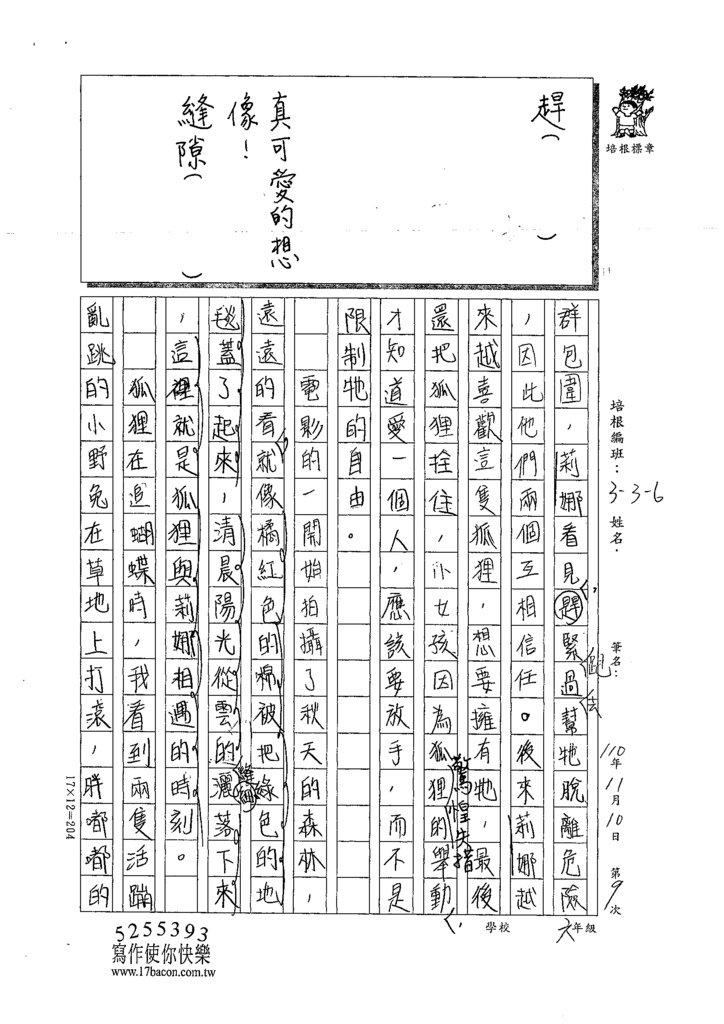 趕（　）
真可愛的想
像！
縫隙（　）
培根標章
培根編班：3-3-6 姓名：
筆名：
110年11月10日 第9次
學校 六年級
群包圍，莉娜看見趕緊過幫牠脫離危險
，因此他們兩個互相信任。後來莉娜越
來越喜歡這隻狐狸，想要擁有牠，最後
還把狐狸拴住，小女孩因為狐狸的舉動
驚惶失措
才知道愛一個人，應該要放手，而不是
限制牠的自由。
電影的一開始拍攝了秋天的森林，
遠遠的看就像橘紅色的棉被把綠色的地
毯蓋了起來，清晨陽光從雲的灑落下來
縫
，這裡就是狐狸與莉娜相遇的時刻。
狐狸在追蝴蝶時，我看到兩隻活蹦
亂跳的小野兔在草地上打滾，胖嘟嘟的
17×12=204
5255393
寫作使你快樂
www.17bacon.com.tw